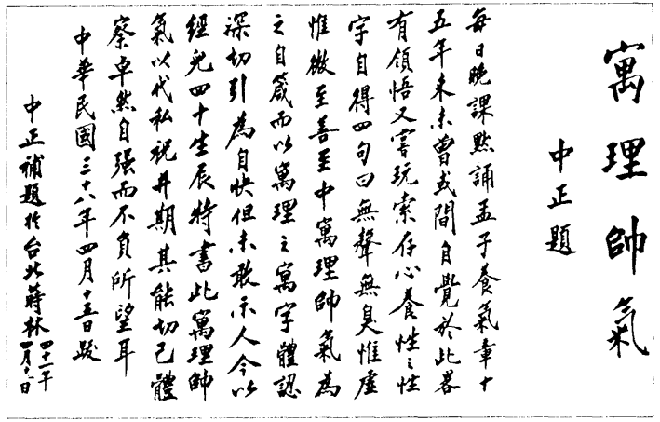 寓理帥氣
中正題
每日晚課默誦孟子養氣章十
五年來未曾或間自覺於此畧
有領悟又嘗玩索存心養性之性
字自得四句曰無聲無臭惟虛
惟微至善至中寓理帥氣為
之自箴而以寓理之寓字體認
深切引為自快但未敢示人今以
經兒四十生辰特書此寓理帥
氣以代私祝并期其能切己體
察卓然自強而不負所望耳
中華民國三十八年四月十五日跋
中正補題於台北蔣林
四十一年